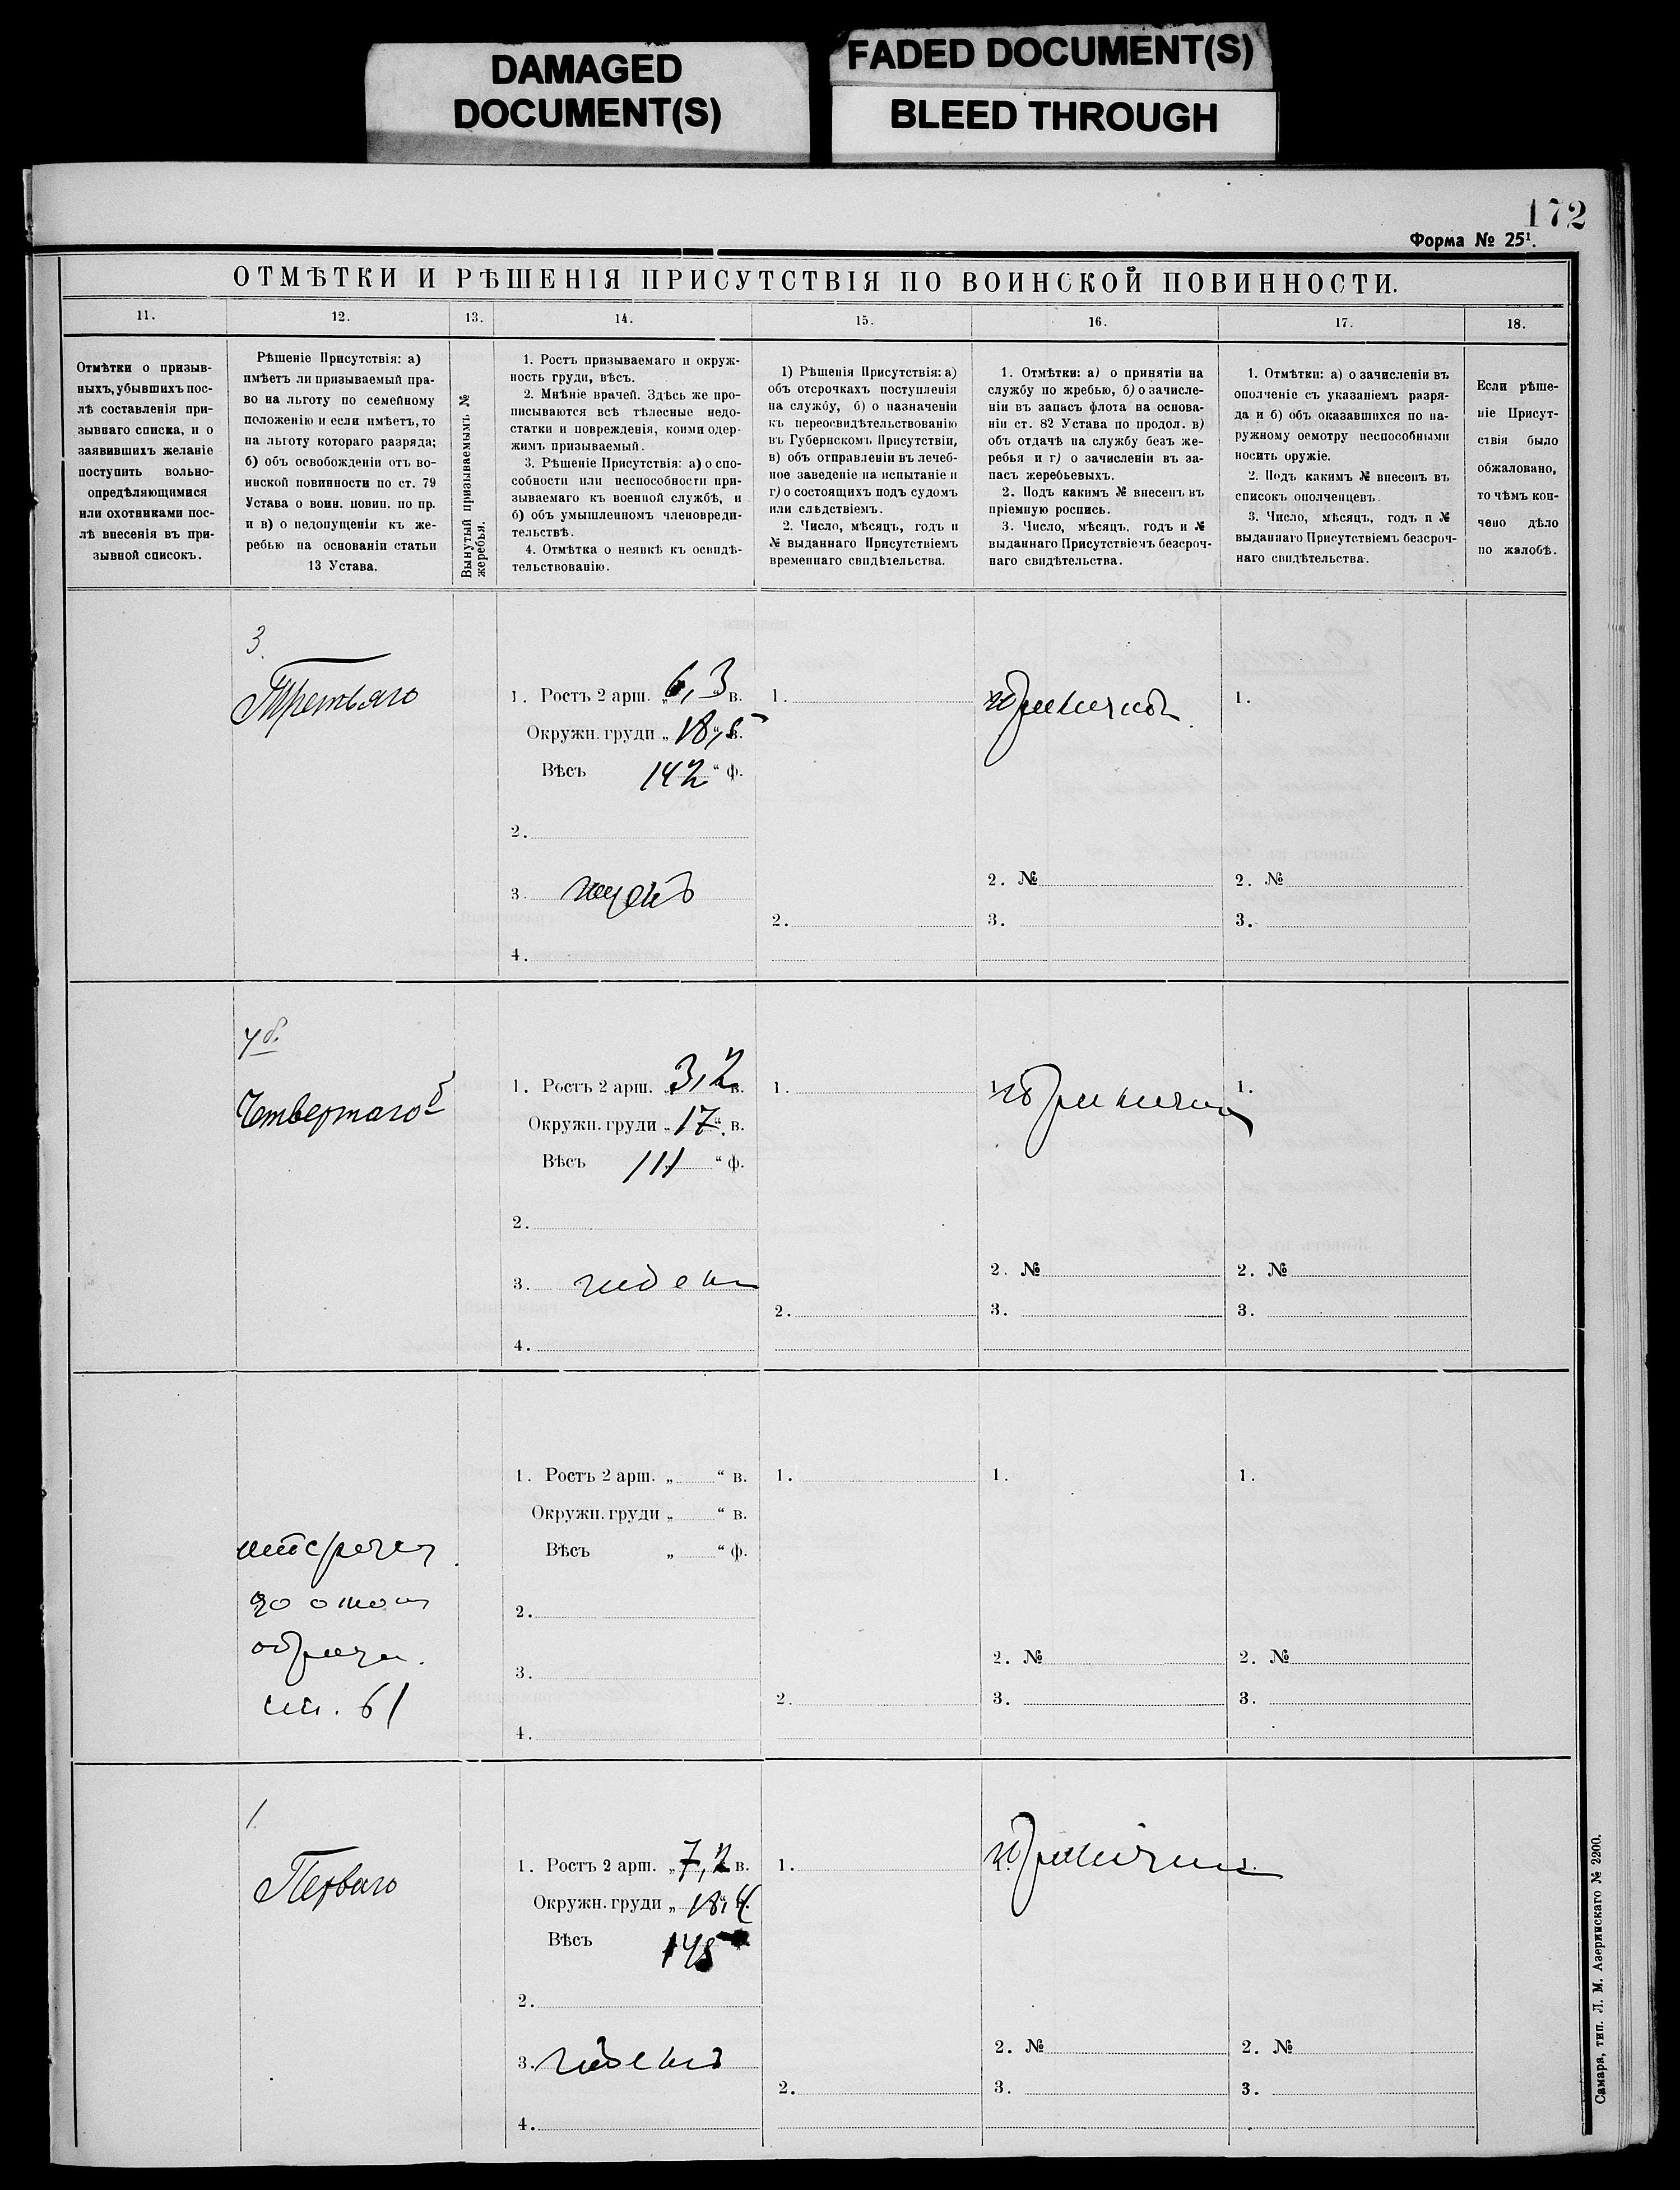 DAMAGED
DOCUMENT(S)
FADED DOCUMENT(S)
BLEED THROUGH
172
Форма № 25¹.
ОТМѢТКИ И РѢШЕНІЯ ПРИСУТСТВІЯ ПО ВОИНСКОЙ ПОВИННОСТИ.
11.
12.
13.
14.
15.
16.
17.
18.
Отмѣтки о призыв-
ныхъ, убывшихъ пос-
лѣ составленія при-
зывнаго списка, и о
заявившихъ желаніе
поступить вольно-
опредѣляющимися
или охотниками пос-
лѣ внесенія въ при-
зывной списокъ.
Рѣшеніе Присутствія: а)
имѣетъ ли призываемый пра-
во на льготу по семейному
положенію и если имѣетъ, то
на льготу котораго разряда;
б) объ освобожденіи отъ во-
инской повинности по ст. 79
Устава о воин. повин. по пр.
и в) о недопущеніи къ же-
ребью на основаніи статьи
13 Устава.
Вынутый призываемымъ №
жеребья.
1. Ростъ призываемаго и окруж-
ность груди, вѣсъ.
2. Мнѣніе врачей. Здѣсь же про-
писываются всѣ тѣлесные недо-
статки и поврежденія, коими одер-
жимъ призываемый.
3. Рѣшеніе Присутствія: а) о спо-
собности или неспособности при-
зываемаго къ военной службѣ, и
б) объ умышленномъ членовреди-
тельствѣ.
4. Отмѣтка о неявкѣ къ освидѣ-
тельствованію.
1) Рѣшенія Присутствія: а)
объ отсрочкахъ поступленія
на службу, б) о назначеніи
къ переосвидѣтельствованію
въ Губернскомъ Присутствіи,
в) объ отправленіи въ лечеб-
ное заведеніе на испытаніе и
г) о состоящихъ подъ судомъ
или слѣдствіемъ.
2. Число, мѣсяцъ, годъ и
№ выданнаго Присутствіемъ
временнаго свидѣтельства.
1. Отмѣтки: а) о принятіи на
службу по жребью, б) о зачисле-
ніи въ запасъ флота на основа-
ніи ст. 82 Устава по продол. в)
объ отдачѣ на службу безъ же-
ребья и г) о зачисленіи въ за-
пасъ жеребьевыхъ.
2. Подъ какимъ № внесенъ въ
пріемную роспись.
3. Число, мѣсяцъ, годъ и №
выданнаго Присутствіемъ безсроч-
наго свидѣтельства.
1. Отмѣтки: а) о зачисленіи въ
ополченіе съ указаніемъ разря-
да и б) объ оказавшихся по на-
ружному осмотру неспособными
носить оружіе.
2. Подъ какимъ № внесенъ въ
списокъ ополченцевъ.
3. Число, мѣсяцъ, годъ и №
выданнаго Присутствіемъ безсроч-
наго свидѣтельства.
Если рѣше-
ніе Присут-
ствія было
обжаловано,
то чѣмъ кон-
чено дѣло
по жалобѣ.
3
Третьяго
1. Ростъ 2 арш. „ 6,3 в.
Окружн. груди „ 18,5 в.
Вѣсъ 142 “ ф.
2.
3. годенъ
4.
1.
2.
2. №
3.
1.
2. №
3.
4б.
Четвертаго б
1. Ростъ 2 арш. „ 3,2 в.
Окружн. груди „ 17 “ в.
Вѣсъ 111 “ ф.
2.
3. годенъ
4.
1.
2.
1.
2. №
3.
1.
2. №
3.
ст. 61
1. Ростъ 2 арш. „ “ в.
Окружн. груди „ “ в.
Вѣсъ „ “ ф.
2.
3.
4.
1.
2.
1.
2. №
3.
1.
2. №
3.
1
Перваго
1. Ростъ 2 арш. „ 7,2 в.
Окружн. груди „ 18,4 в.
Вѣсъ 145
2.
3. годенъ
4.
1.
2.
2. №
3.
1.
2. №
3.
Самара, тип. Л. М. Азеринскаго № 2200.